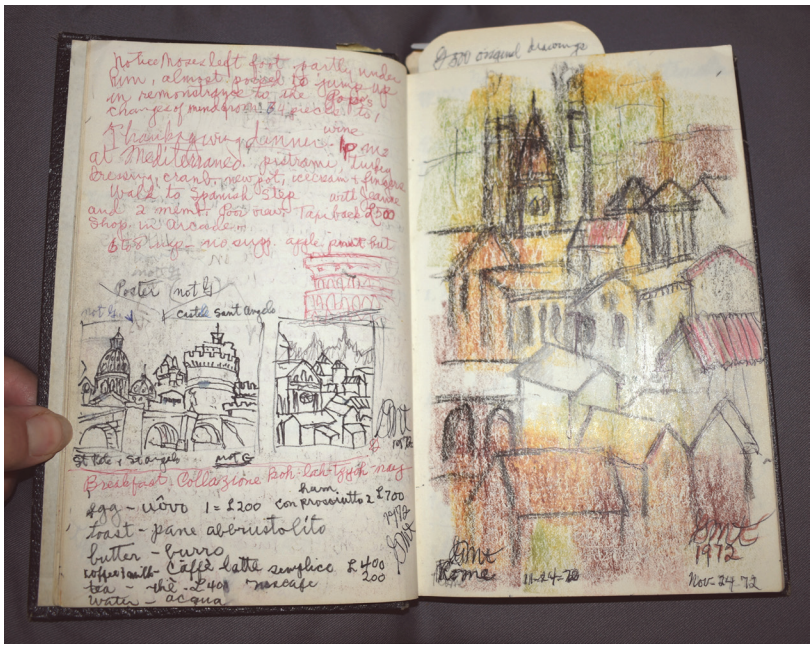 notice Moses left foot partly under
him, almost poised to jump up
in remonstrance to the Pope's
change of mind from 34 pieces to!
Thanksgiving dinner - wine
at Mediterraneo, pistrami, turkey
dressing, cranb, new pot, icecream + fingers
Walk to Spanish Step with Jeanne
and 2 Taxi back £500
Shop in Arcade
no supp. apple
Poster (not G)
not G
castel sant Angelo
St Pete + St angelo
not G
1972
Breakfast, Collazione Koh-lah-tzyoh-nay
egg - uôvo 1 = £200
ham, con prosciutto 2 £700
toast - pane abbrustolito
butter - burro
coffee + milk - caffe latte semplice £400
tea - thè - £40 nescafe 200
water - acqua
1972
£500 original drawings
Rome
11-24-
1972
Nov-24-72